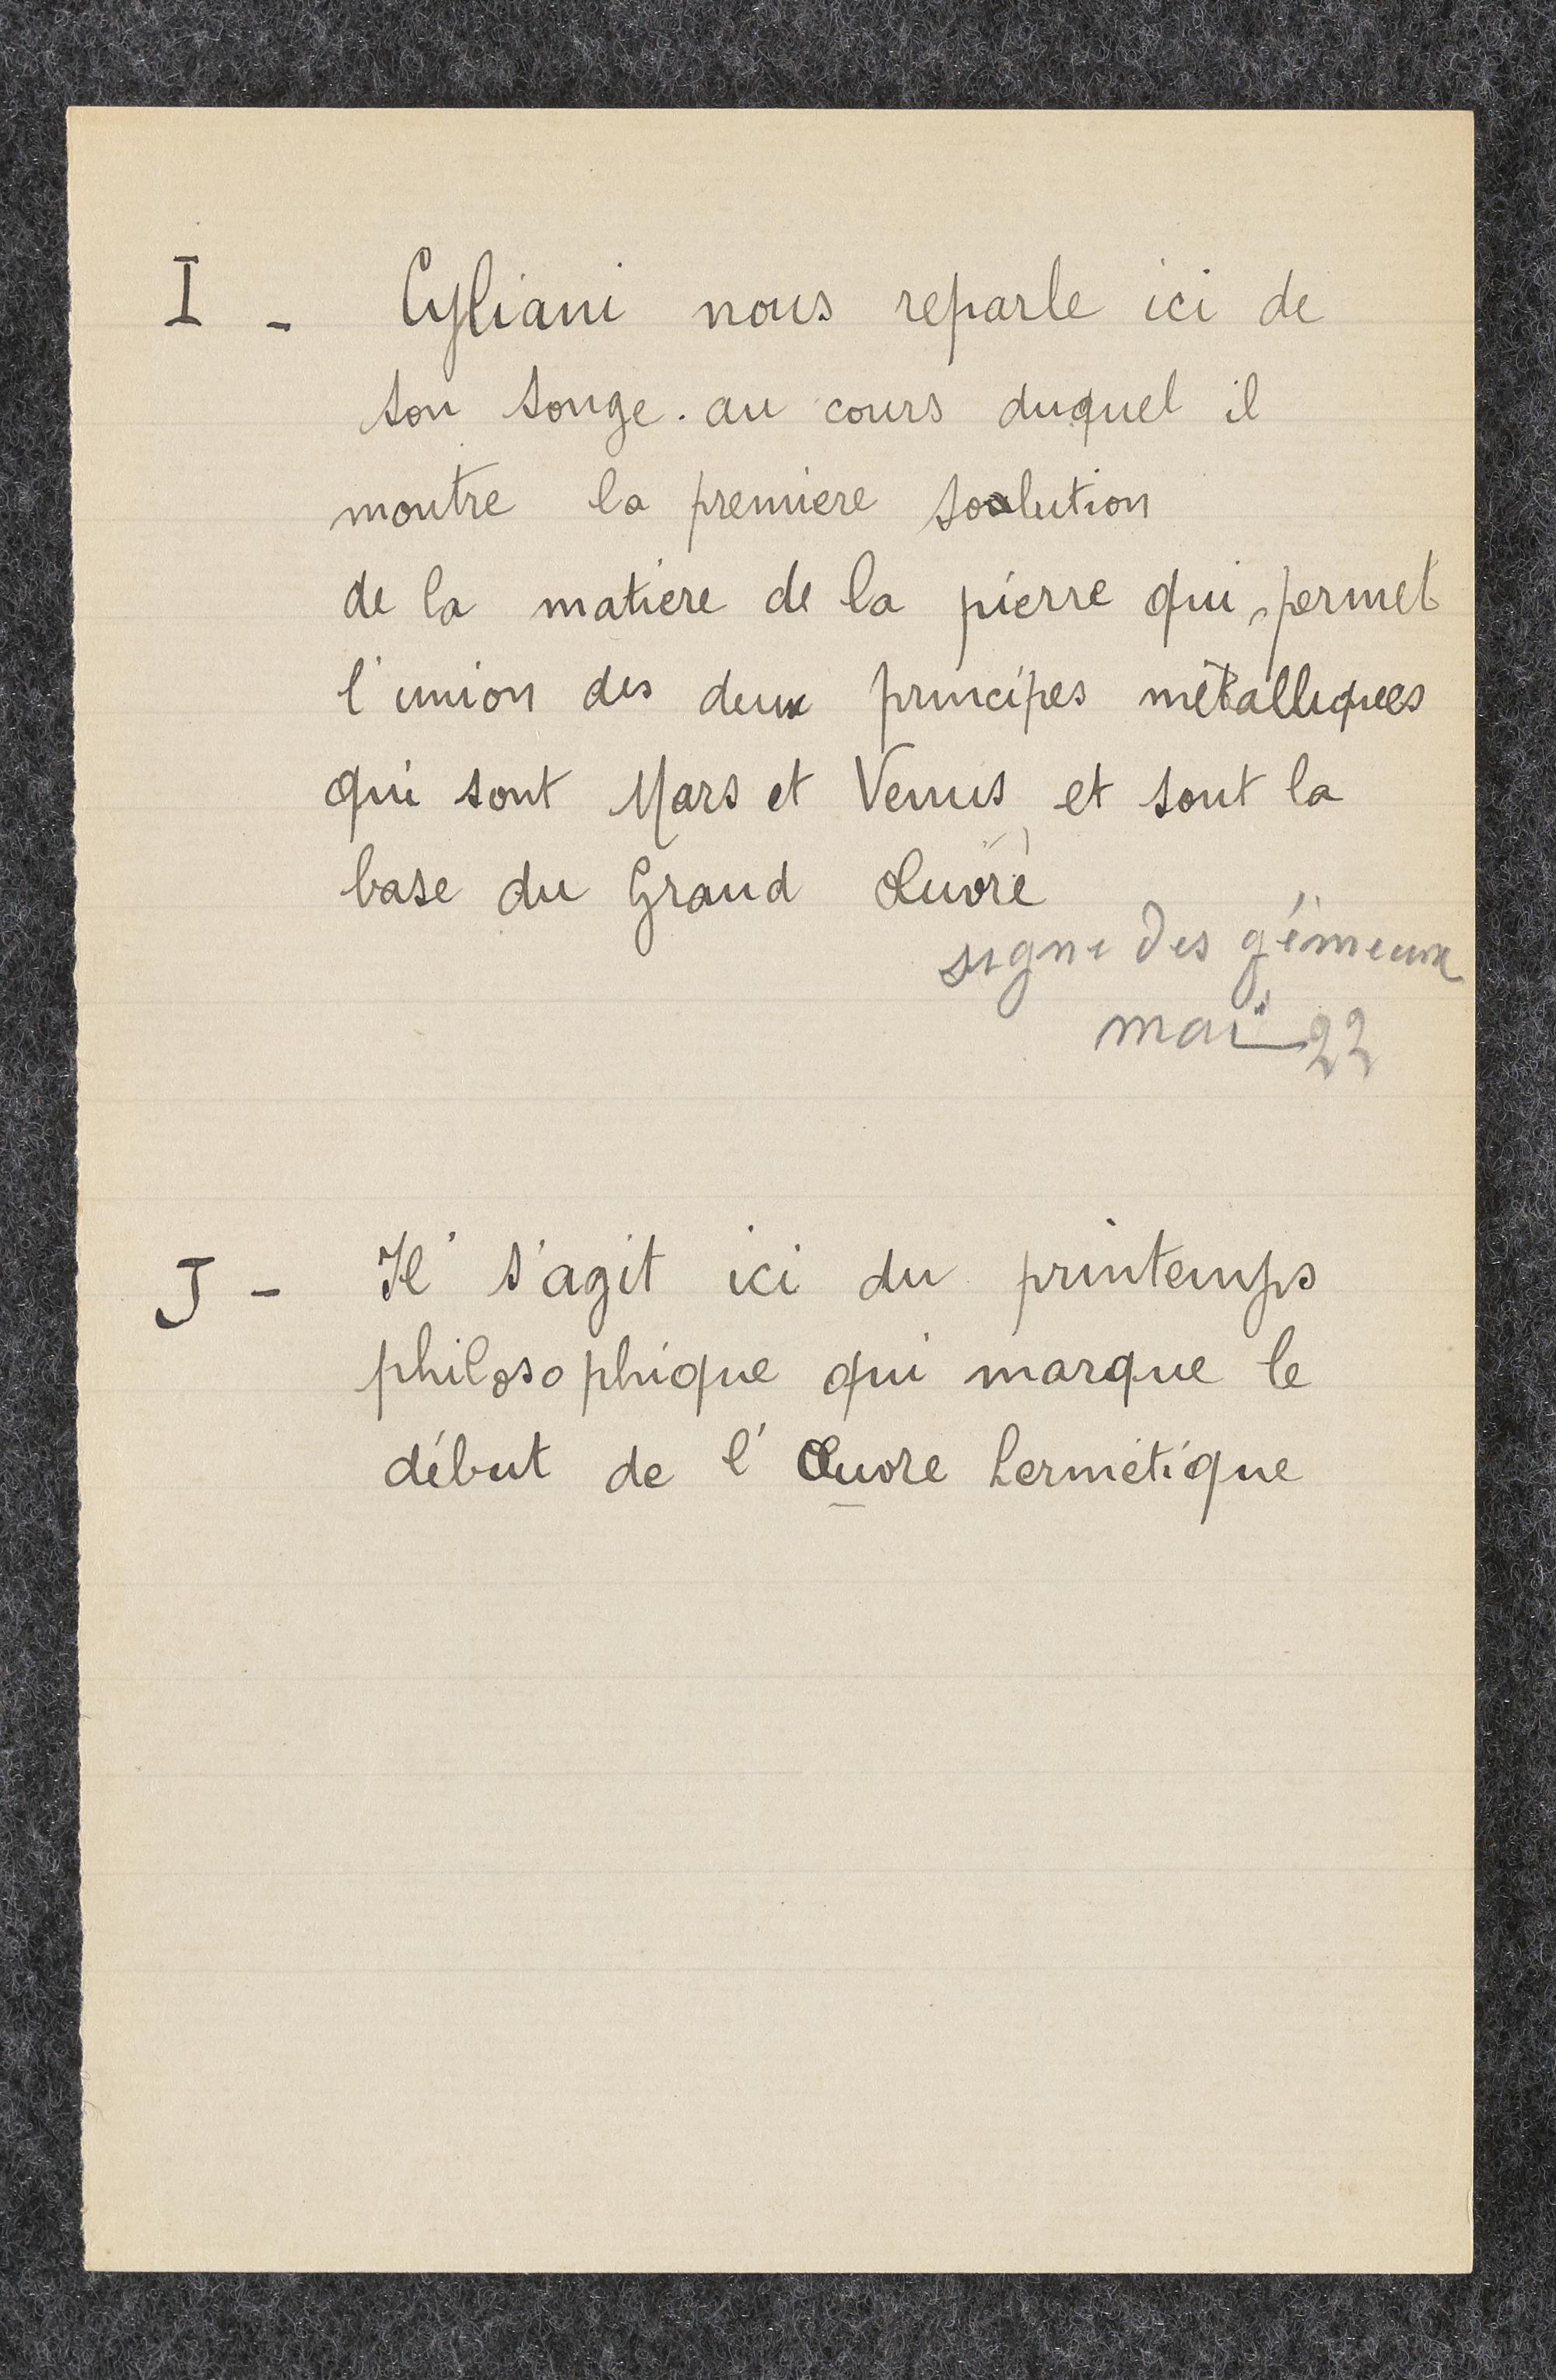 I - Cyliani nous reparle ici de
son songe. au cours duquel il
montre la premiere solution
de la matière de la pierre qui permet
l'union des deux principes métalliques
qui sont Mars et Venus et sont la
base du Grand Œuvre
signe des gémeaux
mai 22
J - Il s'agit ici du printemps
philosophique qui marque le
début de l'Œuvre hermétique